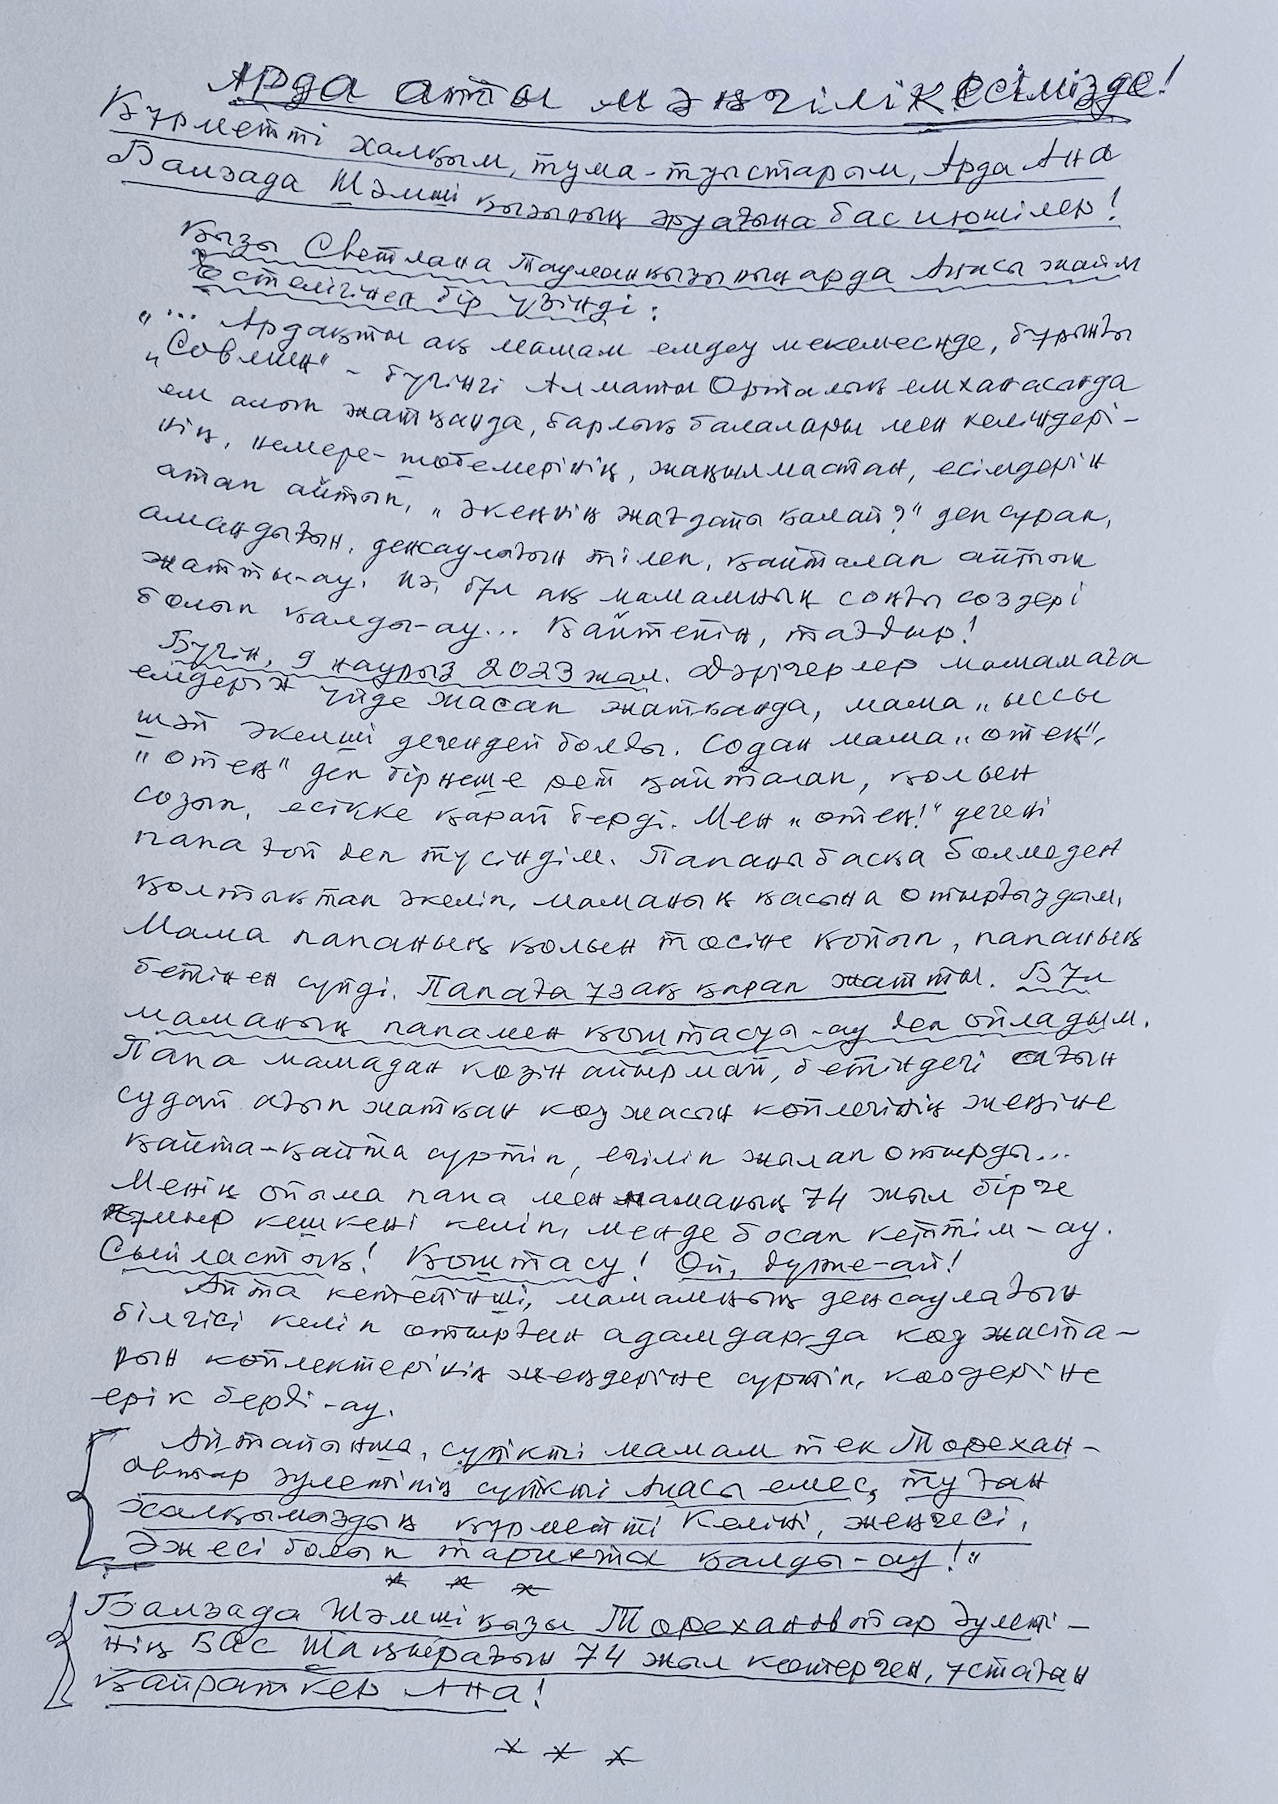 Арда атты мәңгілік есімізде!
Құрметті халқым, тума-туыстарым, Арда Ана
Балзада Шәмші қызының әруағына бас июшілер!
Қызы Светлана Тауманқызының арда Анасы жайлы
естелігінен бір үзінді:
"... Ардақты ақ мамам емдеу мекемесінде, бұрынғы
"Совмин" - бүгінгі Алматы Орталық емханасында
ем алып жатқанда, барлық балалары мен келіндері-
нің, немере-шөбелерінің, жаңылмастан, есімдерін
атап айтып, "әкеңнің жағдайы қалай?" деп сұрап,
амандығын, денсаулығын тілеп, қайталап айтып
жатты-ау. Иә, бұл ақ мамамның соңғы сөздері
болып қалды-ау... Қайтейін, тағдыр!
Бүгін, 9 наурыз 2023 жыл. Дәрігерлер мамамаға
емдерін үйде жасап жатқанда, мама "ыссы
шәй әкелші дегендей болды. Содан мама "отең",
"отең" деп бірнеше рет қайталап, қолын
созып, есікке қарай берді. Мен "отең!" дегені
папа ғой деп түсіндім. Папаны басқа бөлмеден
қолтықтап әкеліп, маманың қасына отырғыздым,
Мама папаның қолын төсіне қойып, папаның
бетінен сүйді. Папаға ұзақ қарап жатты. Бұл
маманың папамен қоштасуы-ау деп ойладым.
Папа мамадан көзін айырмай, бетіндегі ағын
судай ағып жатқан көз жасын көйлегінің жеңіне
қайта-қайта сүртіп, егіліп жылап отырды...
Менің ойыма папа мен маманың 74 жыл бірге
ғұмыр кешкені келіп, менде босап кеттім-ау.
Сыйластық! Қоштасу! Ой, дүние-ай!
Айта кетейінші, мамамның денсаулағын
білгісі келіп отырған адамдарда көз жаста-
рын көйлектерінің жеңдеріне сүртіп, көздеріне
ерік берді-ау.
Айтайынша, сүйікті мамам тек Төрехан-
овтар әулетінің сүйікті Анасы емес, туған
халқымыздың құрметті Келіні, жеңгесі,
Әжесі болып тарихта қалды-ау!"
* * *
Балзада Шәмші қызы Төрехановтар әулеті-
нің Бас Шаңырағын 74 жыл көтерген, ұстаған
Қайраткер Ана!
* * *